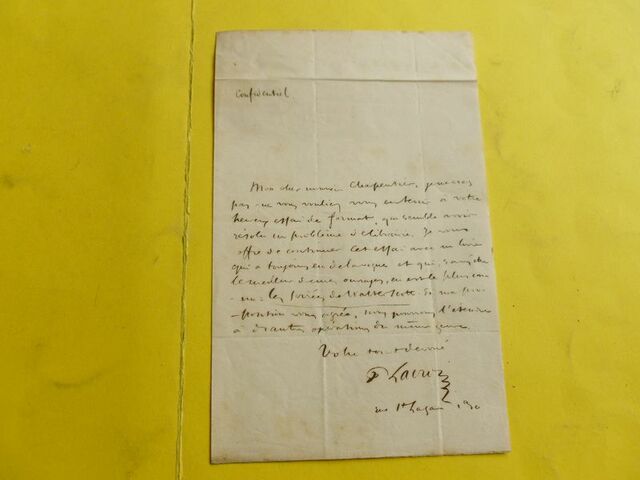 Confidentiel
Mon cher monsieur Charpentier, je ne crois
pas que vous vouliez vous en tenir à votre
heureux essai de format, qui semble avoir
résolu un problème de librairie. Je vous
offre de continuer cet essai avec un livre
qui a toujours eu de la vogue et qui, sans être
le meilleur de mes ouvrages, en est le plus con-
nu: les soirées de Walter Scott. Si ma pro-
position vous agrée, nous pourrons l'étendre
à d'autres opérations du même genre.
Votre tout dévoué
P Lacroix
rue St Lazare